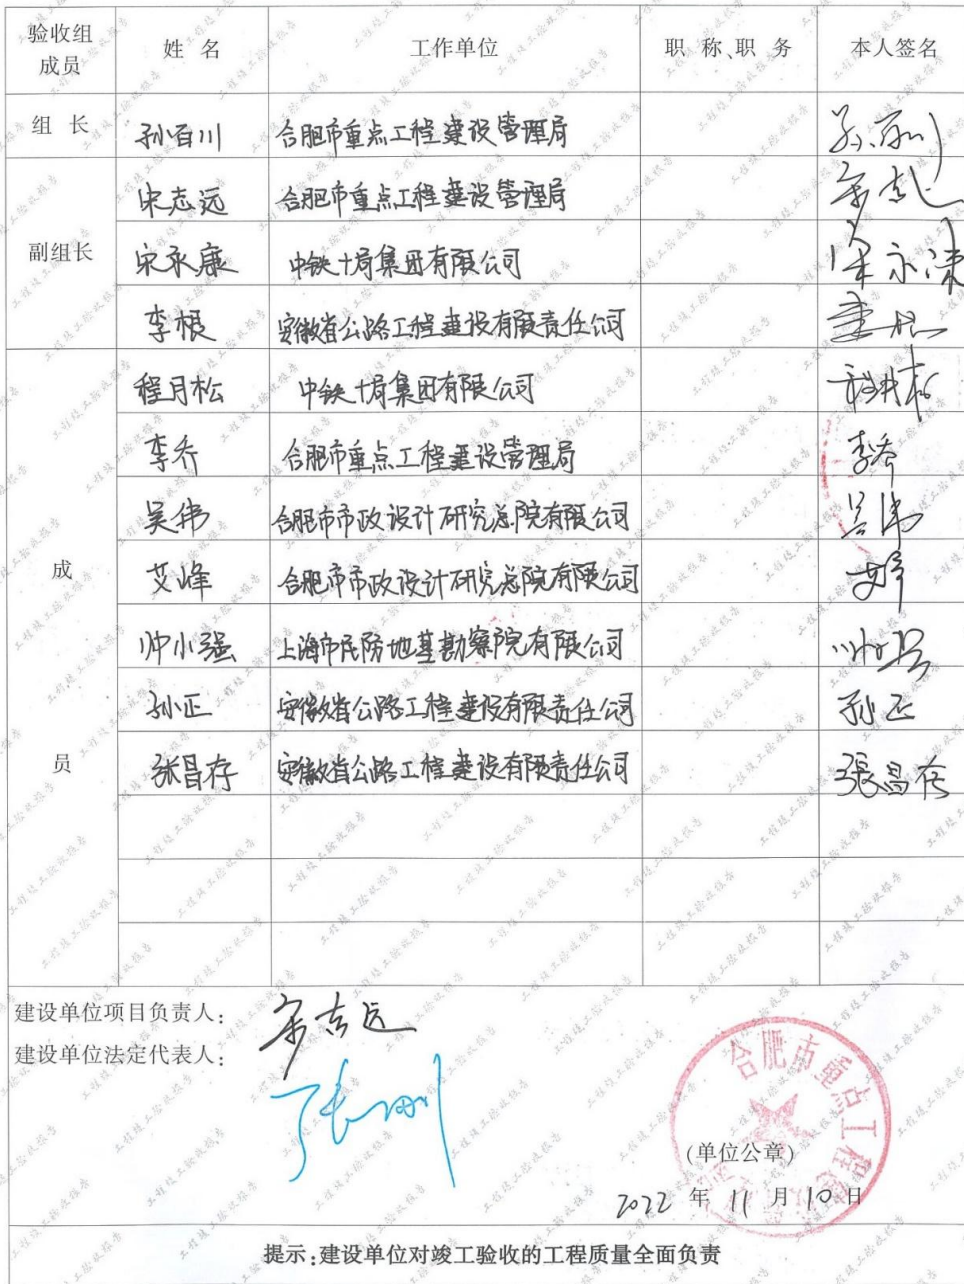 验收组成员 姓 名 工作单位 职 称、职 务 本人签名
组 长 孙百川 合肥市重点工程建设管理局
宋志远 合肥市重点工程建设管理局
副组长 宋永康 中铁十局集团有限公司
李根 安徽省公路工程建设有限责任公司
程月松 中铁十局集团有限公司
李乔 合肥市重点工程建设管理局 李乔
吴伟 合肥市市政设计研究总院有限公司 吴伟
成 艾峰 合肥市市政设计研究总院有限公司 艾峰
帅小强 上海市民防地基勘察院有限公司
孙正 安徽省公路工程建设有限责任公司 孙正
员 张昌存 安徽省公路工程建设有限责任公司 張昌存
建设单位项目负责人: 宋志远
建设单位法定代表人:
合肥市重点工程
(单位公章)
2022 年 11 月 10 日
提示:建设单位对竣工验收的工程质量全面负责
工程竣工验收报告